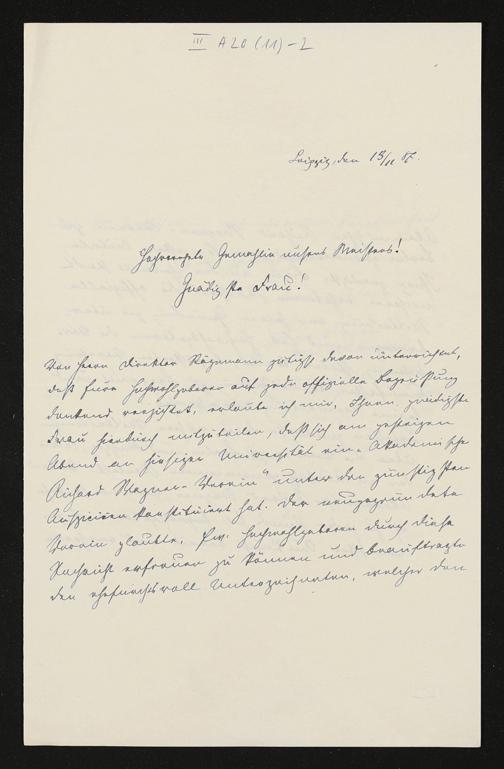 III A 20 (11) - 2
Leipzig, den 15/II 87.
Hochverehrte Gemahlin unseres Meisters!
Gnädigste Frau!
Von Herrn Direktor Stägemann gütigst davon unterrichtet,
daß Eure Hochwohlgeboren auf jede offizielle Begrüßung
dankend verzichtet, erlaube ich mir, Ihnen, gnädigste
Frau hierdurch mitzuteilen, daß sich am gestrigen
Abend an hiesiger Universität ein „Akademischer
Richard Wagner-Verein" unter den günstigsten
Auspicien konstituiert hat. Der neugegründete
Verein glaubte, Ew. Hochwohlgeboren durch diese
Nachricht erfreuen zu können und beauftragte
den ehrfurchtsvoll Unterzeichneten, welcher den